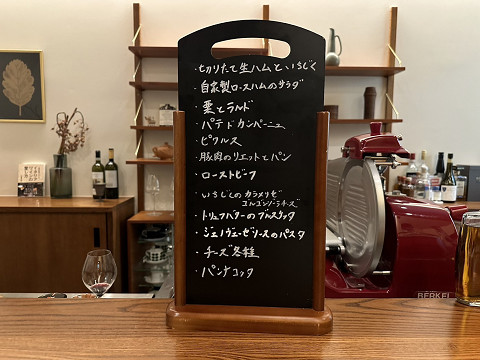 ・切りたて生ハムといちじく
・自家製ロースハムのサラダ
・栗とラルド
・パテドカンパーニュ
・ピクルス
・豚肉のリエットとパン
・ローストビーフ
・いちじくのカラメリゼ
ゴルゴンゾーラチーズ
・トリュフバターのブルスケッタ
・ジェノヴェーゼソースのパスタ
・チーズ各種
・パンナコッタ
BERKEL